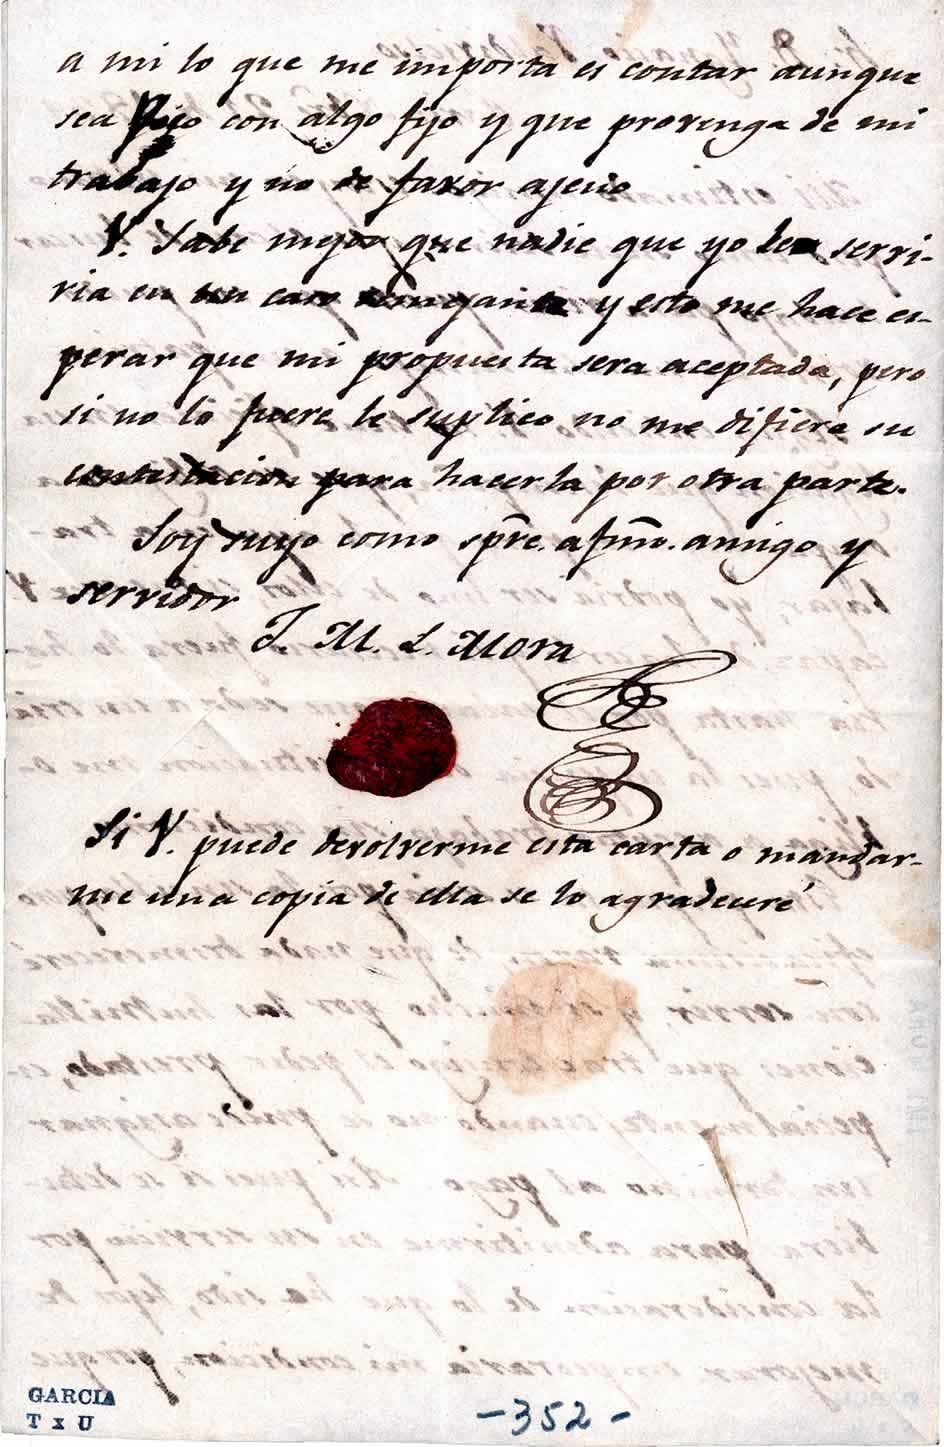 a mi lo que me importa es contar aunque
sea poco con algo fijo y que provenga de mi
trabajo y no de favor ajeno
V. sabe mejor que nadie que yo le servi-
ria en un caso semejante y esto me hace es-
perar que mi propuesta sera aceptada, pero
si no lo fuere le suplico no me difiera su
contestacion para hacerla por otra parte.
Soy suyo como spre. afmo. amigo y
servidor
J. M. L. Mora
Si V. puede devolverme esta carta o mandar-
me una copia de ella se lo agradeceré
GARCIA
T x U
-352-